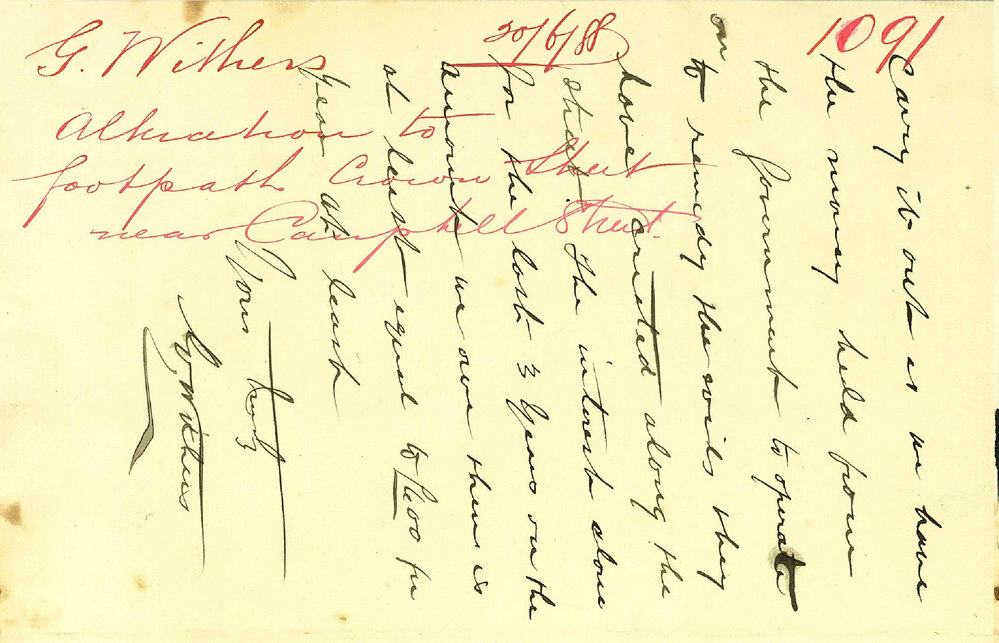 1091
G. Withers 20/6/88
Alteration to
footpath Crown Street
near Campbell Street.
Carry it out as we have
the money held from
the Government to operate
on
to remedy the evils they
have created along the
street. The interest alone
for the last 3 years on the
amount we owe them is
at least equal to £600 per
year at least
Yours truly
G. Withers